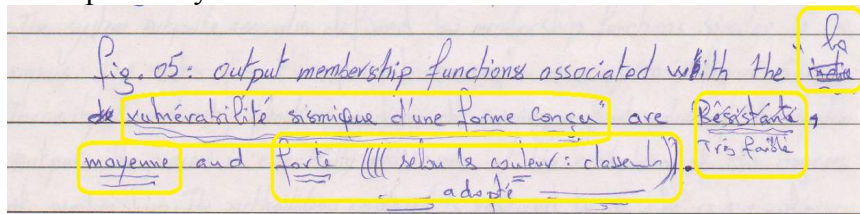 fig. 05: output membership functions associated with the "la
vulnérabilité sismique d'une forme conçu" are "Résistante,
Très faible
moyenne and forte (((( selon les couleur :
adopté